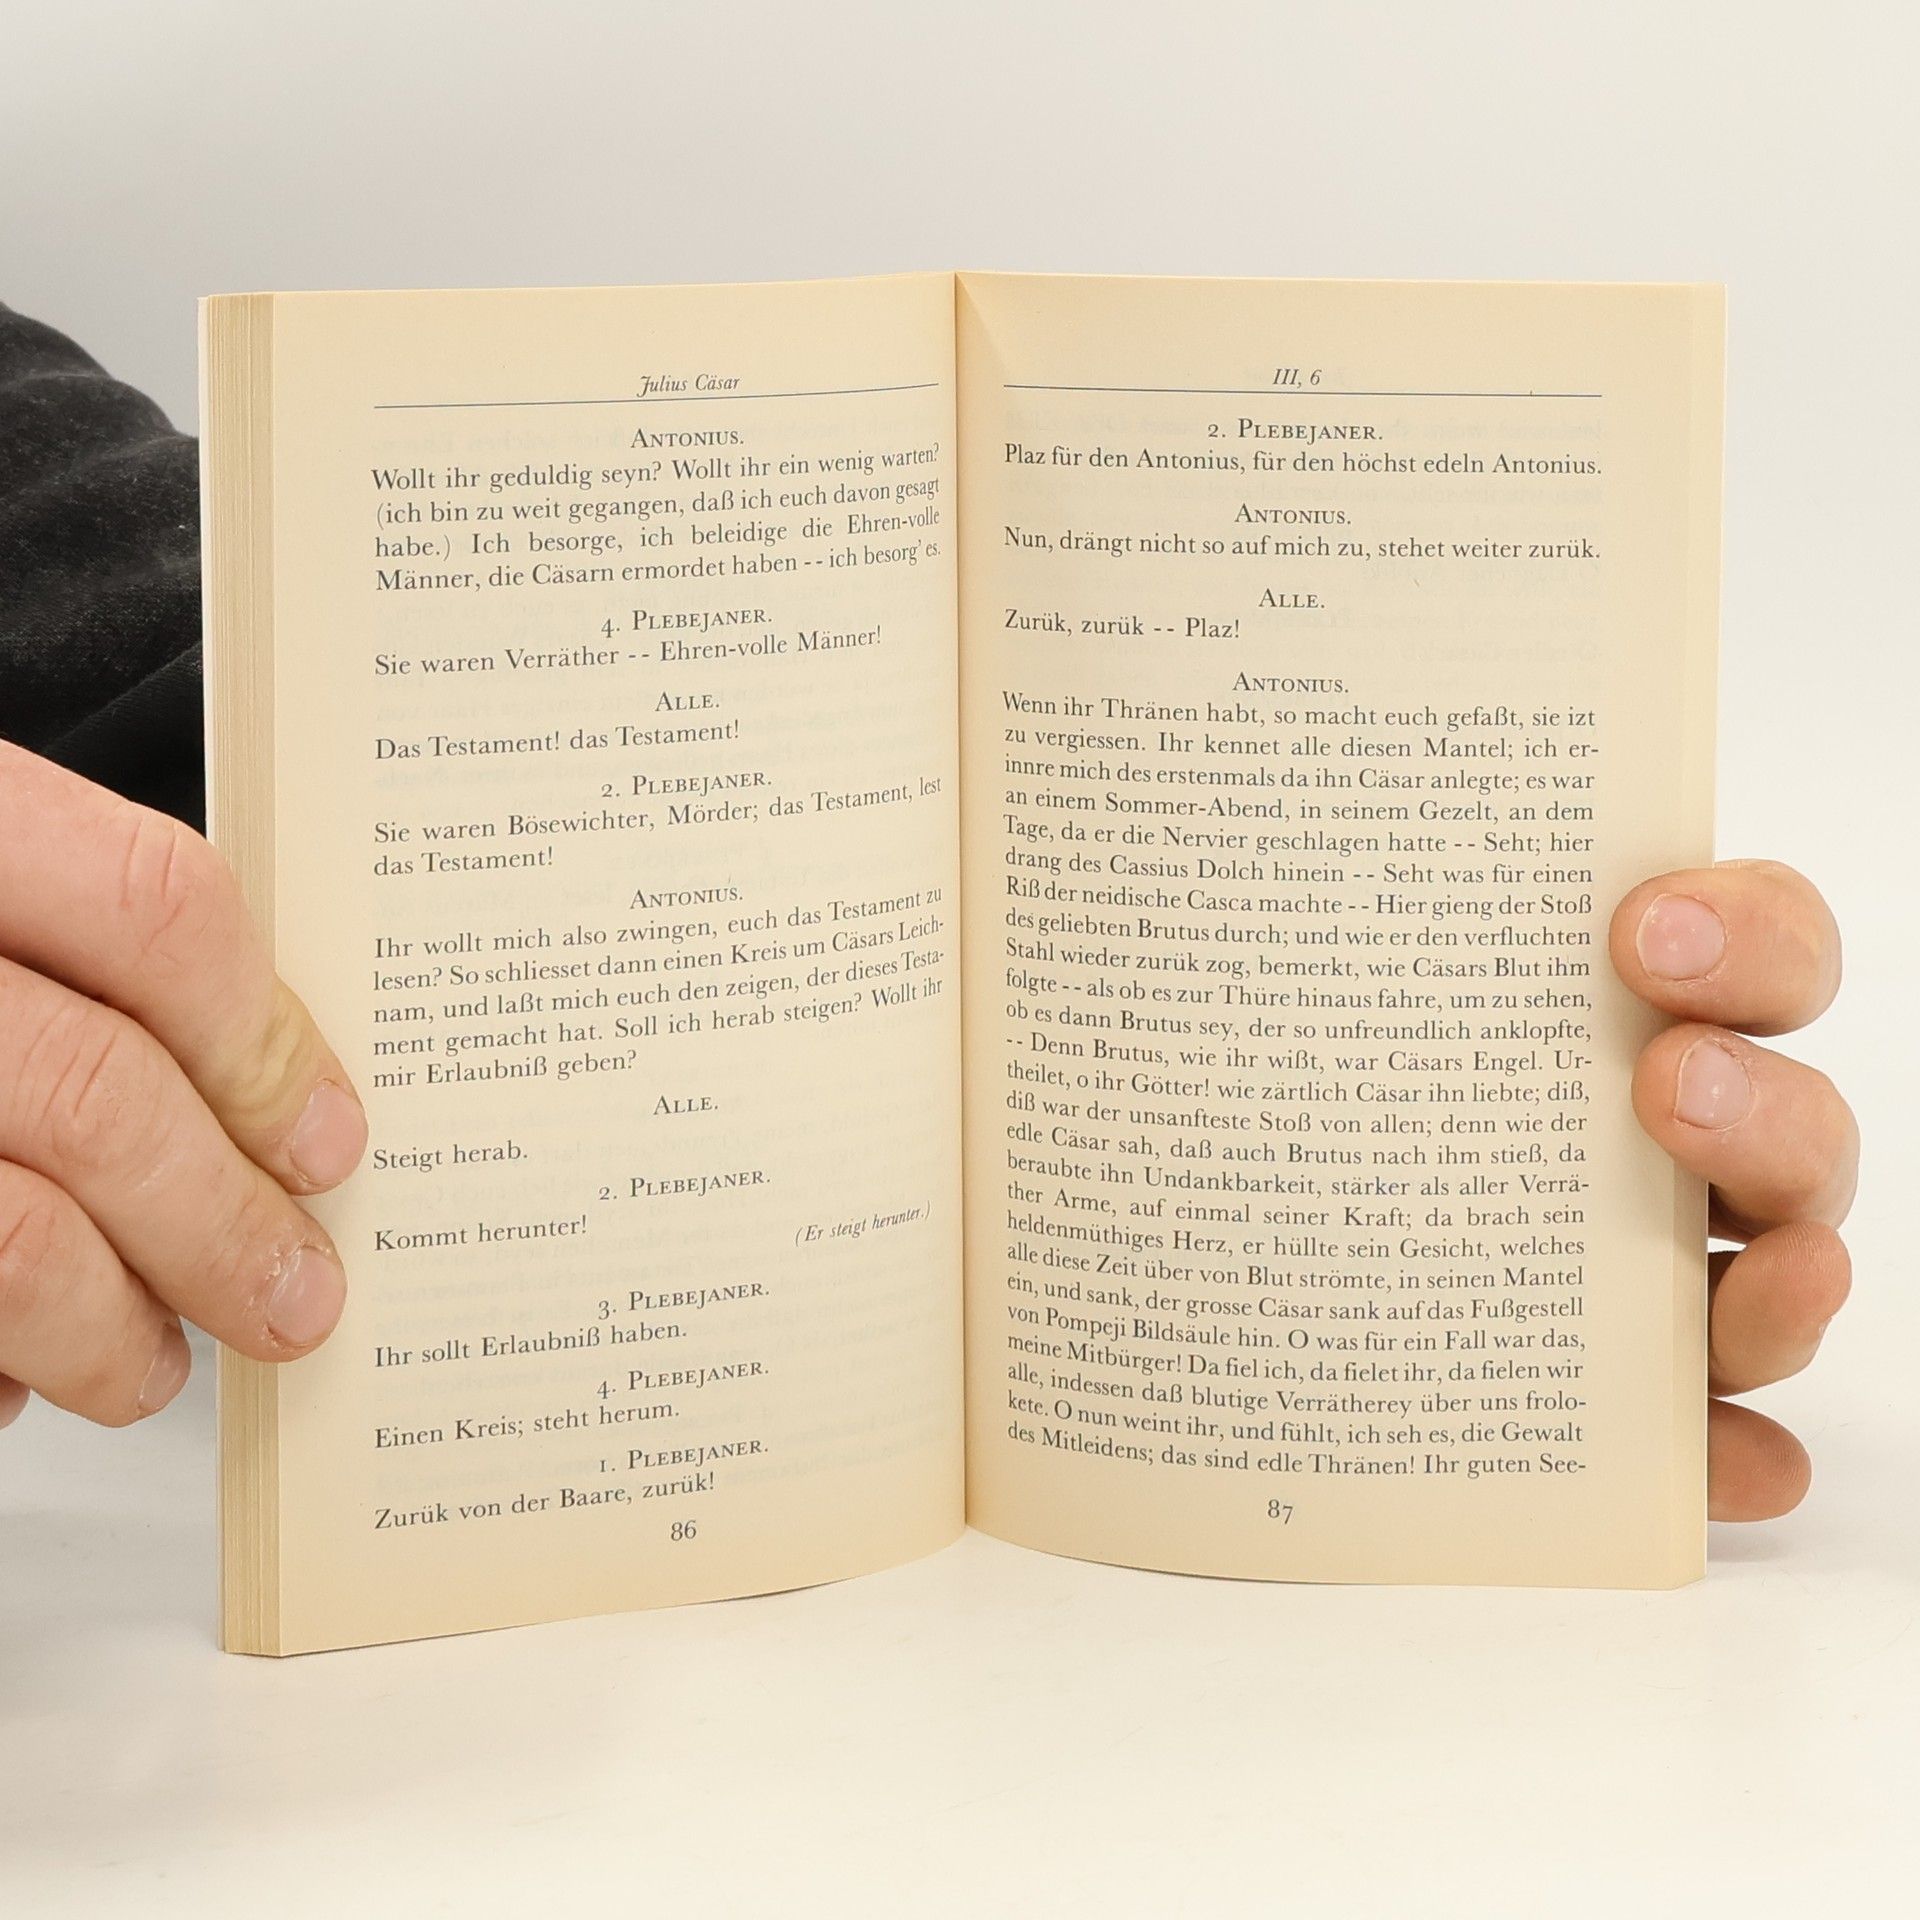 Julius Cäsar
Antonius.
Wollt ihr geduldig seyn? Wollt ihr ein wenig warten?
(ich bin zu weit gegangen, daß ich euch davon gesagt
habe.) Ich besorge, ich beleidige die Ehren-volle
Männer, die Cäsarn ermordet haben -- ich besorg' es.
4. Plebejaner.
Sie waren Verräther -- Ehren-volle Männer!
Alle.
Das Testament! das Testament!
2. Plebejaner.
Sie waren Bösewichter, Mörder; das Testament, lest
das Testament!
Antonius.
Ihr wollt mich also zwingen, euch das Testament zu
lesen? So schliesset dann einen Kreis um Cäsars Leich-
nam, und laßt mich euch den zeigen, der dieses Testa-
ment gemacht hat. Soll ich herab steigen? Wollt ihr
mir Erlaubniß geben?
Alle.
Steigt herab.
2. Plebejaner.
Kommt herunter!
(Er steigt herunter.)
3. Plebejaner.
Ihr sollt Erlaubniß haben.
4. Plebejaner.
Einen Kreis; steht herum.
1. Plebejaner.
Zurük von der Baare, zurük!
86
III, 6
2. Plebejaner.
Plaz für den Antonius, für den höchst edeln Antonius.
Antonius.
Nun, drängt nicht so auf mich zu, stehet weiter zurük.
Alle.
Zurük, zurük -- Plaz!
Antonius.
Wenn ihr Thränen habt, so macht euch gefaßt, sie izt
zu vergiessen. Ihr kennet alle diesen Mantel; ich er-
innre mich des erstenmals da ihn Cäsar anlegte; es war
an einem Sommer-Abend, in seinem Gezelt, an dem
Tage, da er die Nervier geschlagen hatte -- Seht; hier
drang des Cassius Dolch hinein -- Seht was für einen
Riß der neidische Casca machte -- Hier gieng der Stoß
des geliebten Brutus durch; und wie er den verfluchten
Stahl wieder zurük zog, bemerkt, wie Cäsars Blut ihm
folgte -- als ob es zur Thüre hinaus fahre, um zu sehen,
ob es dann Brutus sey, der so unfreundlich anklopfte,
-- Denn Brutus, wie ihr wißt, war Cäsars Engel. Ur-
theilet, o ihr Götter! wie zärtlich Cäsar ihn liebte; diß,
diß war der unsanfteste Stoß von allen; denn wie der
edle Cäsar sah, daß auch Brutus nach ihm stieß, da
beraubte ihn Undankbarkeit, stärker als aller Verrä-
ther Arme, auf einmal seiner Kraft; da brach sein
heldenmüthiges Herz, er hüllte sein Gesicht, welches
alle diese Zeit über von Blut strömte, in seinen Mantel
ein, und sank, der grosse Cäsar sank auf das Fußgestell
von Pompeji Bildsäule hin. O was für ein Fall war das,
meine Mitbürger! Da fiel ich, da fielet ihr, da fielen wir
alle, indessen daß blutige Verrätherey über uns frolo-
kete. O nun weint ihr, und fühlt, ich seh es, die Gewalt
des Mitleidens; das sind edle Thränen! Ihr guten See-
87